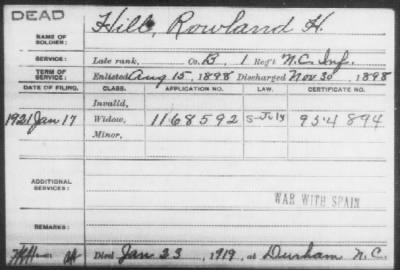 DEAD
NAME OF SOLDIER: Hill, Rowland H.
SERVICE: Late rank, Co. B, 1 Reg't N.C. Inf.
TERM OF SERVICE: Enlisted Aug 15, 1898 Discharged Nov 30, 1898
DATE OF FILING. CLASS. APPLICATION NO. LAW. CERTIFICATE NO.
Invalid,
1921 Jan 17 Widow, 1168592 954894
Minor,
ADDITIONAL SERVICES:
WAR WITH SPAIN
REMARKS:
Died Jan 23, 1919, at Durham N.C.